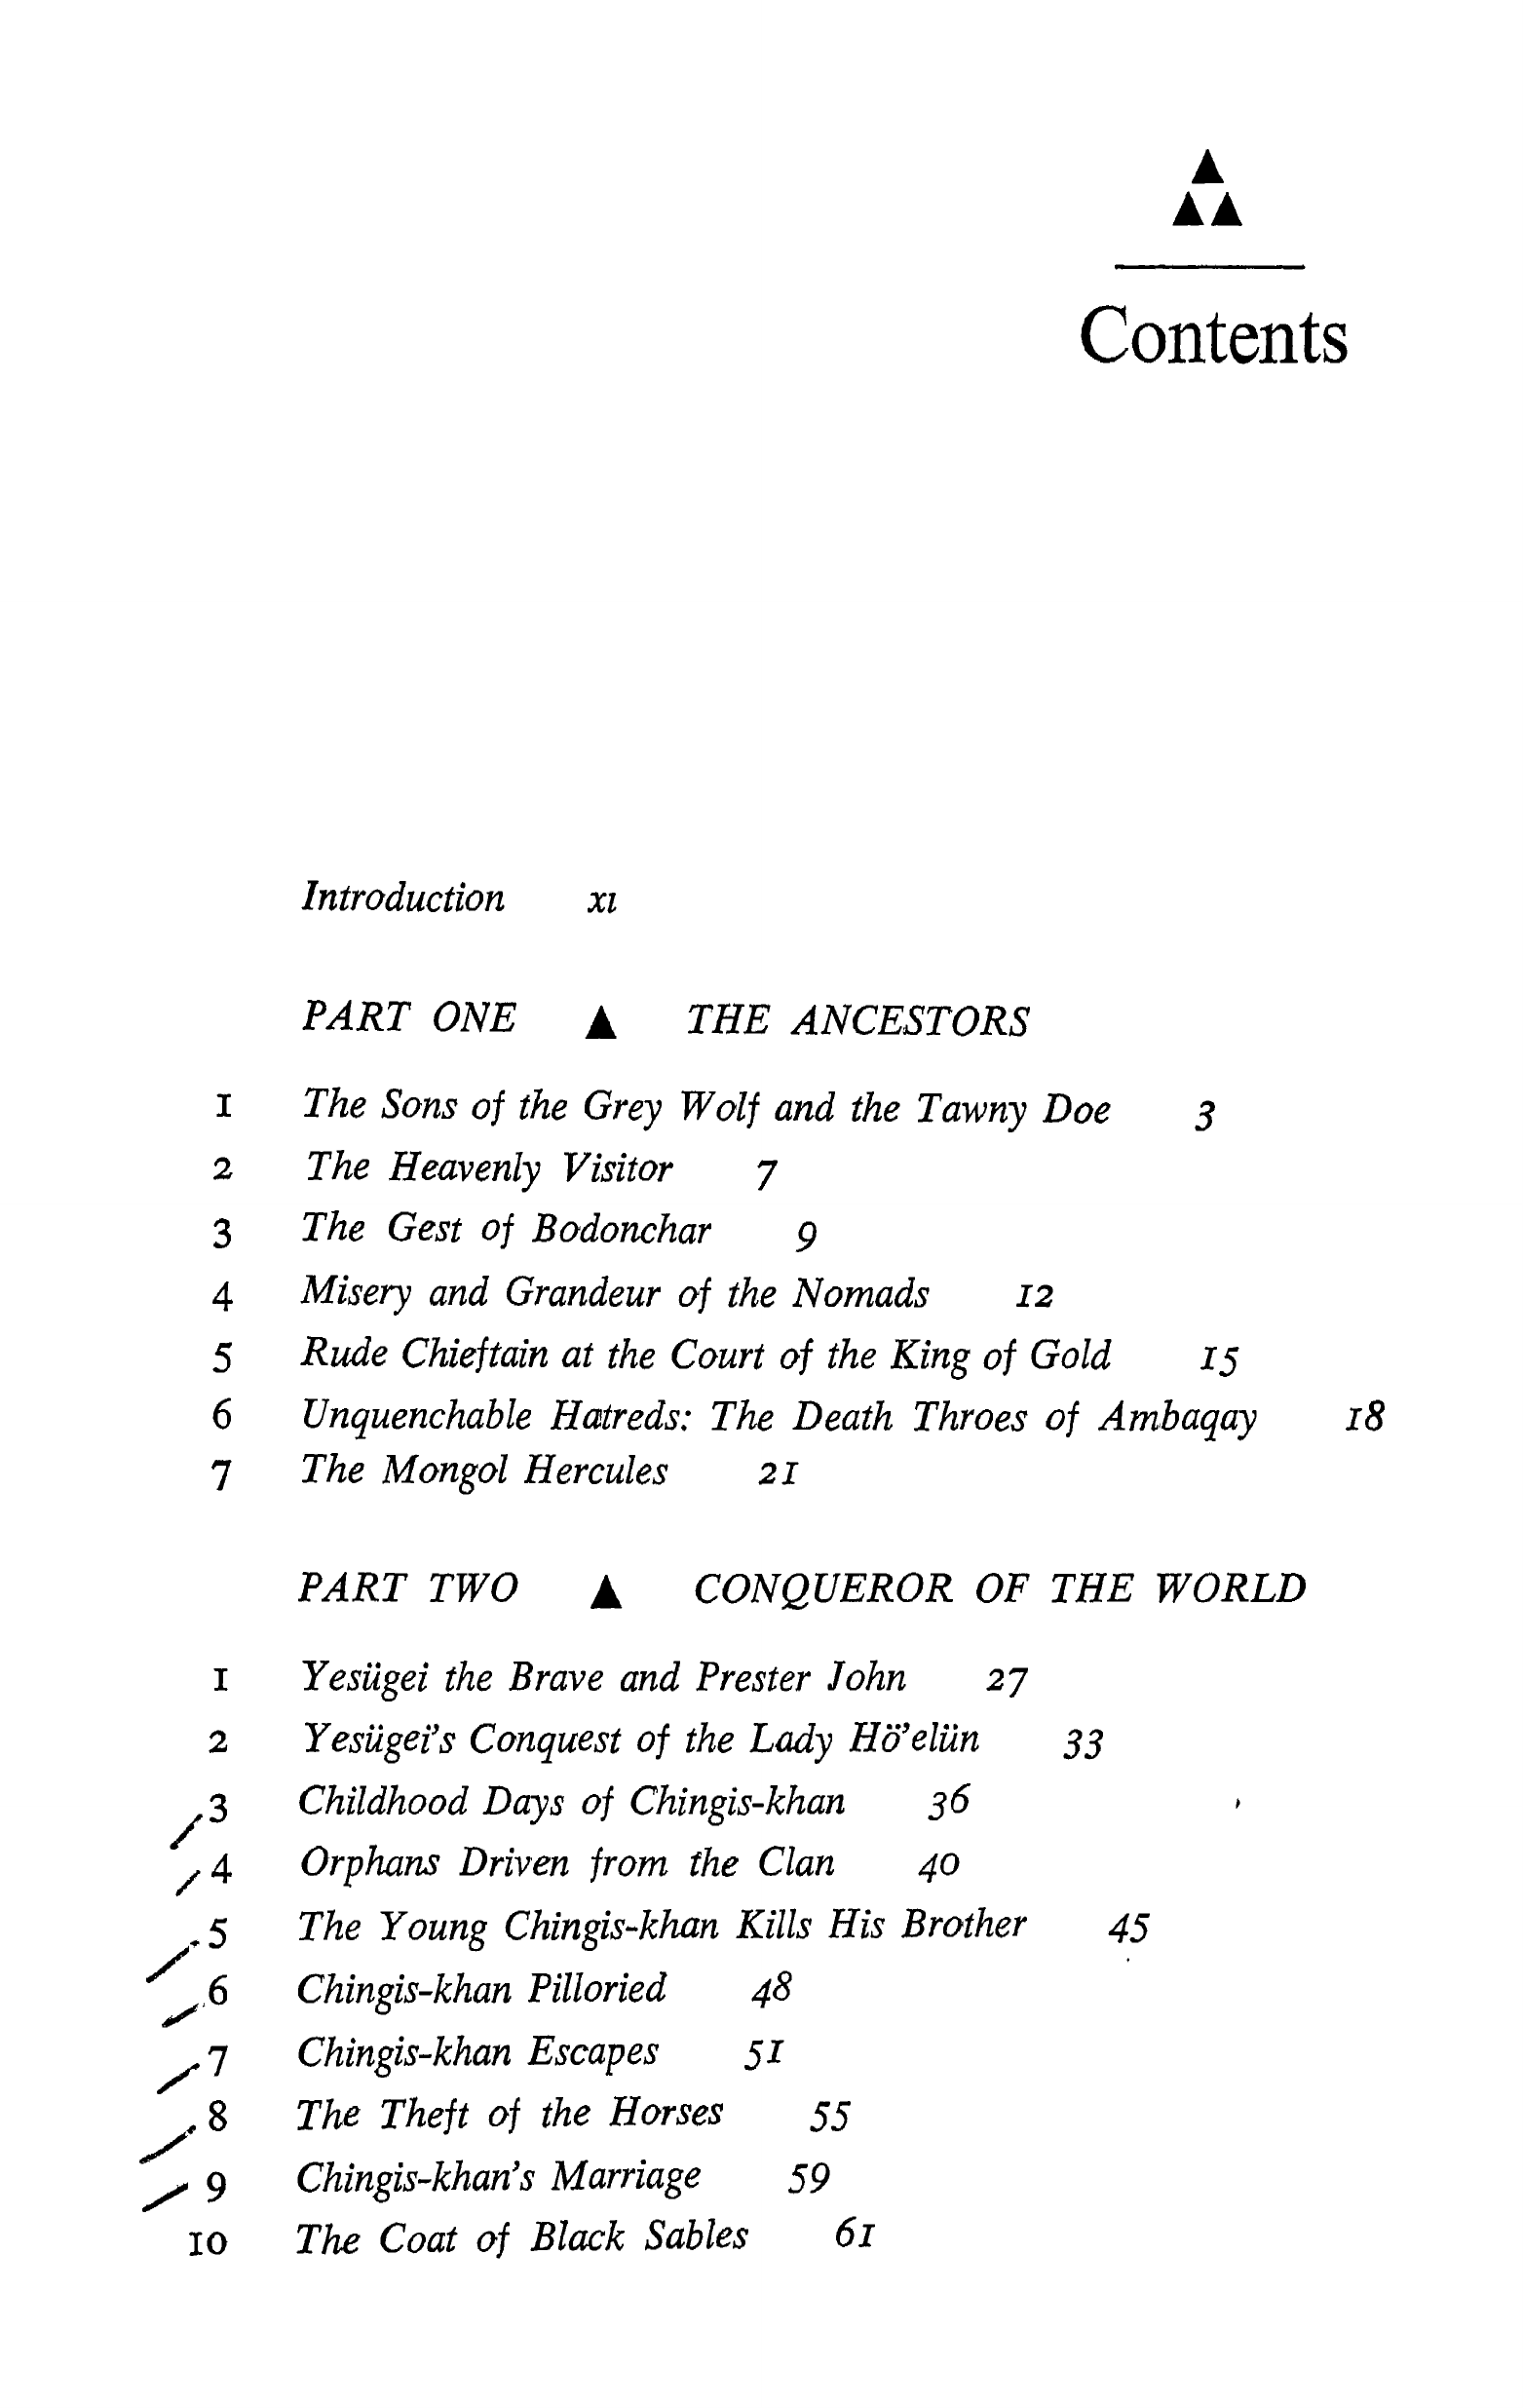 Contents
Introduction xi
PART ONE ▲ THE ANCESTORS
1 The Sons of the Grey Wolf and the Tawny Doe 3
2 The Heavenly Visitor 7
3 The Gest of Bodonchar 9
4 Misery and Grandeur of the Nomads 12
5 Rude Chieftain at the Court of the King of Gold 15
6 Unquenchable Hatreds: The Death Throes of Ambaqay 18
7 The Mongol Hercules 21
PART TWO ▲ CONQUEROR OF THE WORLD
1 Yesügei the Brave and Prester John 27
2 Yesügei's Conquest of the Lady Hö'elün 33
3 Childhood Days of Chingis-khan 36
4 Orphans Driven from the Clan 40
5 The Young Chingis-khan Kills His Brother 45
6 Chingis-khan Pilloried 48
7 Chingis-khan Escapes 51
8 The Theft of the Horses 55
9 Chingis-khan's Marriage 59
10 The Coat of Black Sables 61